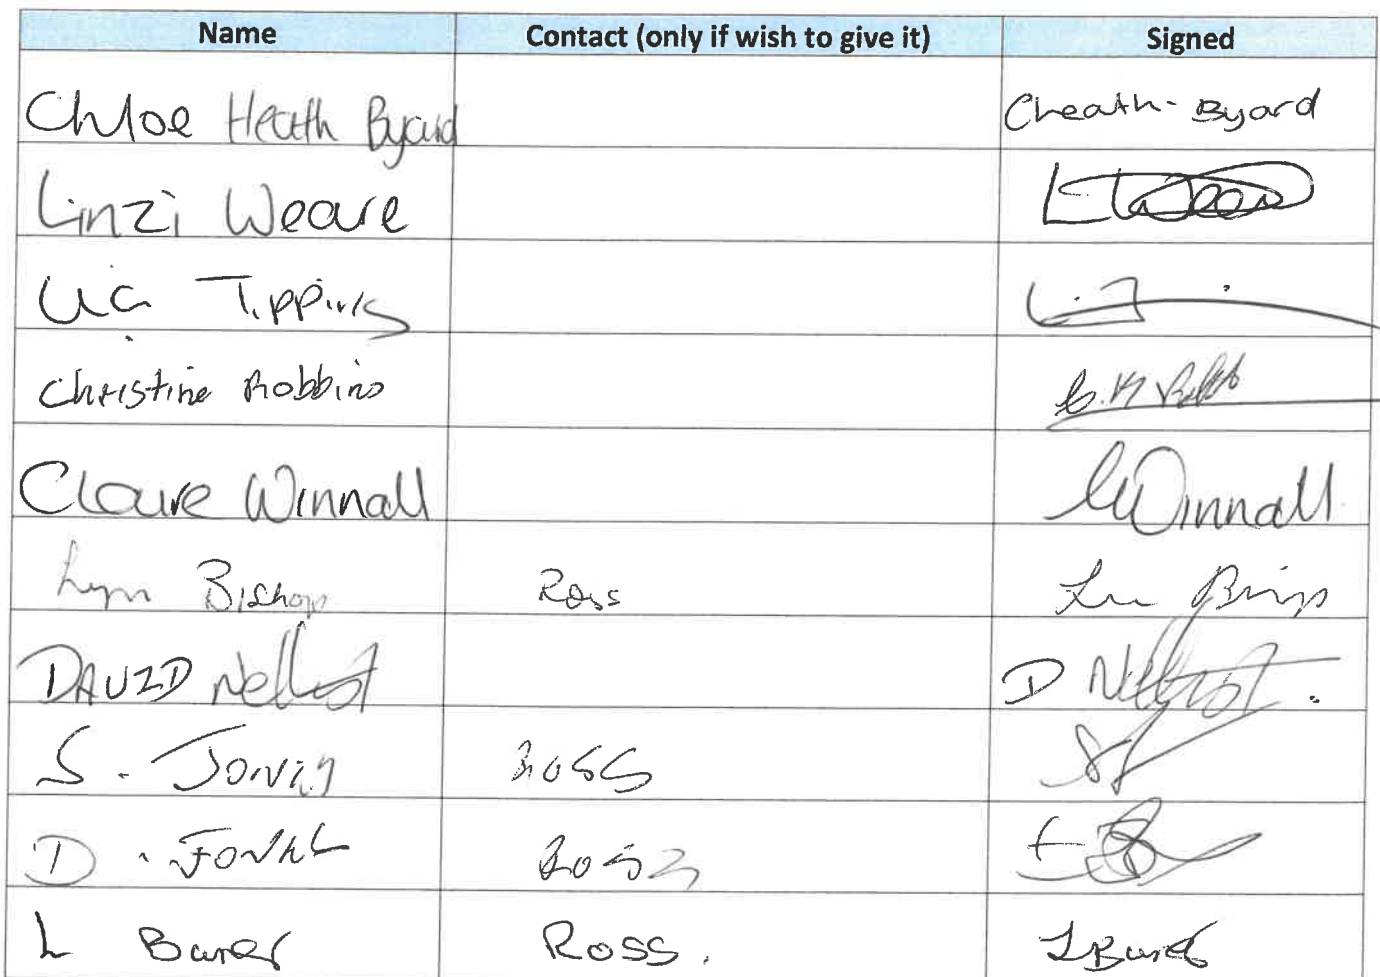 Name Contact (only if wish to give it) Signed
Chloe Heath Byard Cheath-Byard
Linzi Weare
Lia Tipping
Christine Robbins
Claire Winnall CWinnall
Lyn Bishop Ross
DAVID Nellist D Nellist.
S. Ross
D. Ross
L Ross.